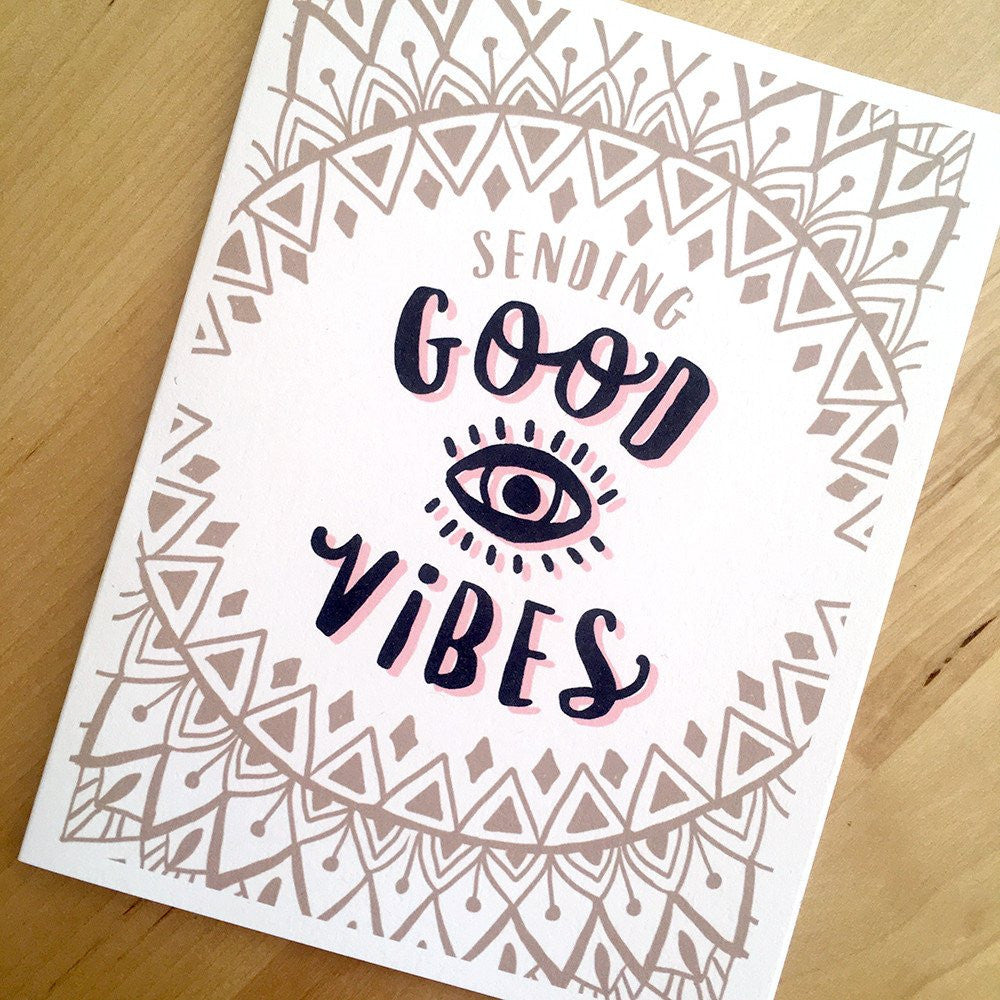 SENDING
GOOD
ViBES